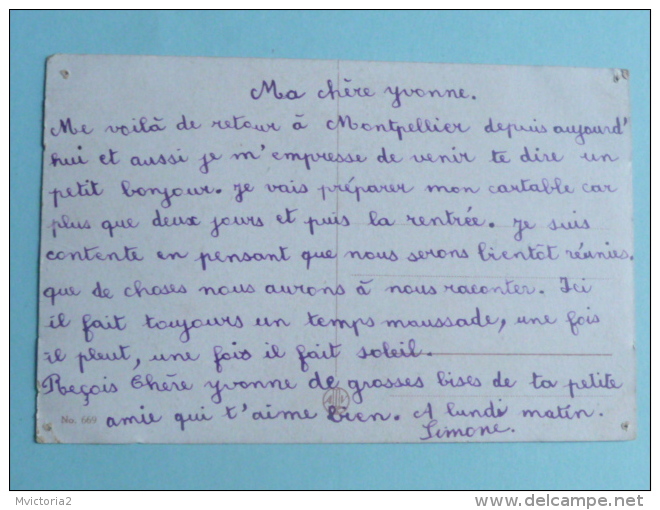 Ma chère yvonne.
Me voilà de retour à Montpellier depuis aujourd'
hui et aussi je m'empresse de venir te dire un
petit bonjour. je vais préparer mon cartable car
plus que deux jours et puis la rentrée. je suis
contente en pensant que nous serons bientôt réunies.
que de choses nous aurons à nous raconter. Ici
il fait toujours un temps maussade, une fois
il pleut, une fois il fait soleil.
Reçois Chère yvonne de grosses bises de ta petite
amie qui t'aime bien. A lundi matin.
Simone.
No. 669
Mvictoria2
delcampe.net